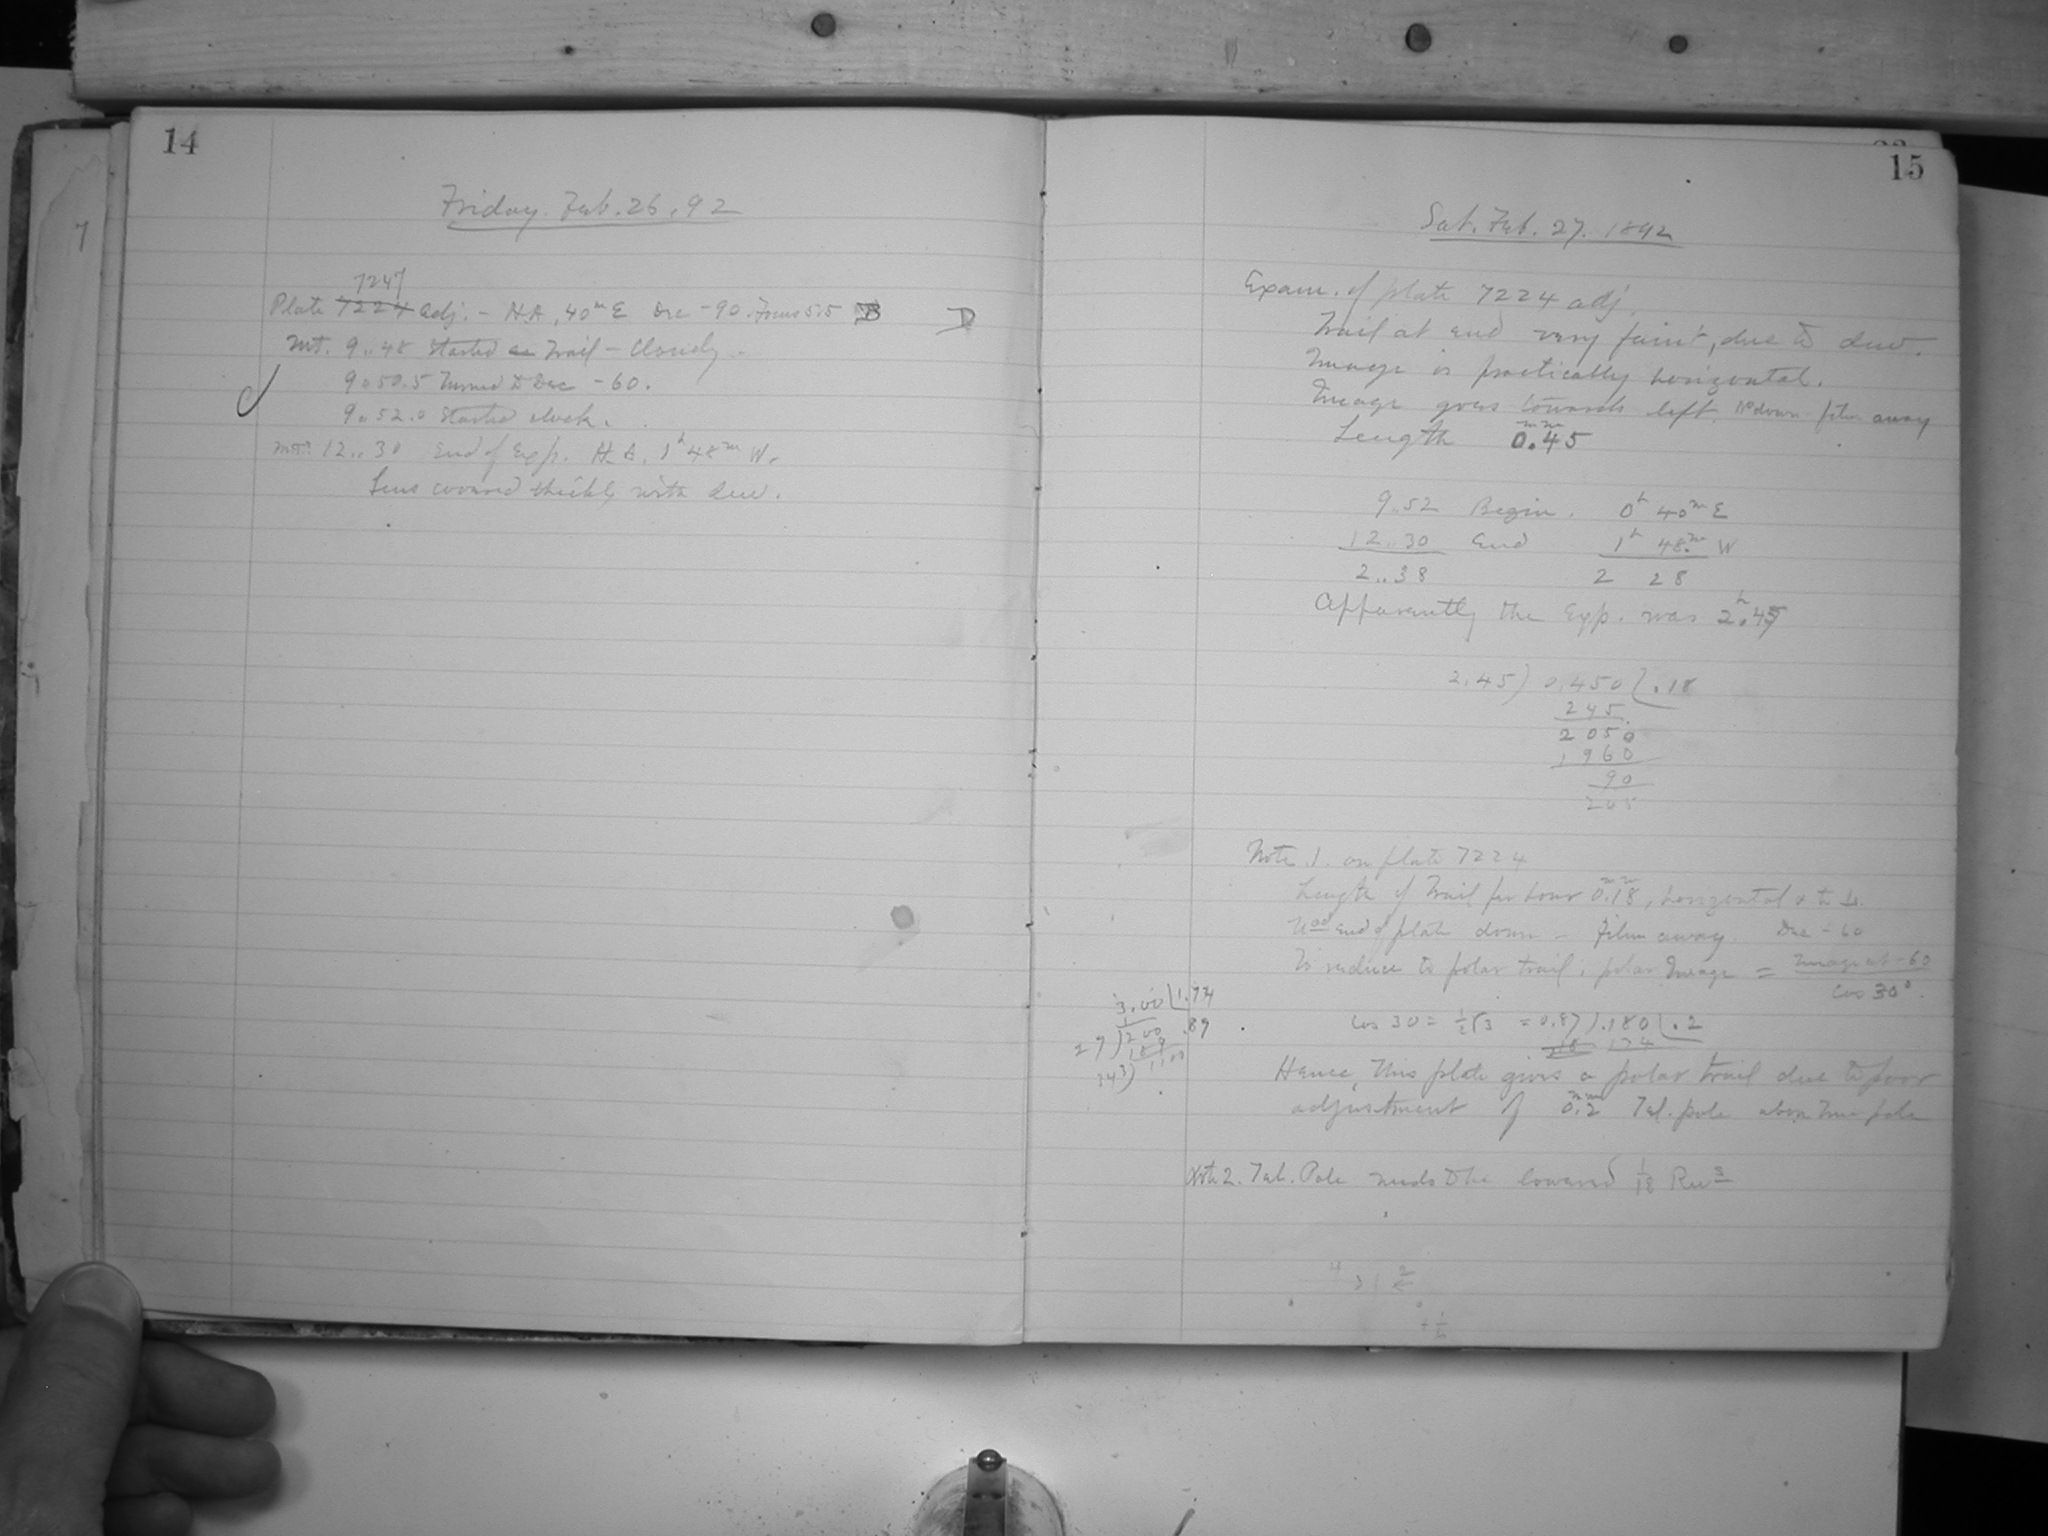 14
Friday. Feb. 26. 92
7247
Plate 7224 adj. - H.A. 40m E Dec -90. Focus 5.5 B D
9..48 Started Trail - Cloudy.
9..50.5 Turned to Dec -60.
9..52.0 Started clock.
12..30 End of Exp. H.A. 1h 48m W.
Lens covered thickly with dew.
7
15
Sat. Feb. 27. 1892
Exam. of plate 7224 adj.
Trail at end very faint, due to dew.
Image is practically horizontal.
Image goes towards left. No down film away
Length 0.45 mm
9..52 Begin. 0h 40m E
12..30 End 1h 48m W
2..38 2 28
Apparently the Exp. was 2h.45
2.45) 0.450 ( .18
245
2050
1960
90
205
Note 1. on plate 7224
Length of Trail per hour 0.18 mm, horizontal & to
end of plate down - Film away. Dec -60
To reduce to polar trail; polar Image = Image at -60 / cos 30°
3.00 ( 1.74
1
27 ) 200 .87
189
343) 1100
cos 30 = 1/2 √3 = 0.87 ) .180 ( .2
174
Hence, this plate gives a polar trail due to poor
adjustment of 0.2 mm Tel. pole above True pole
Note 2. Tel. Pole needs to be lowered 1/18 Revs